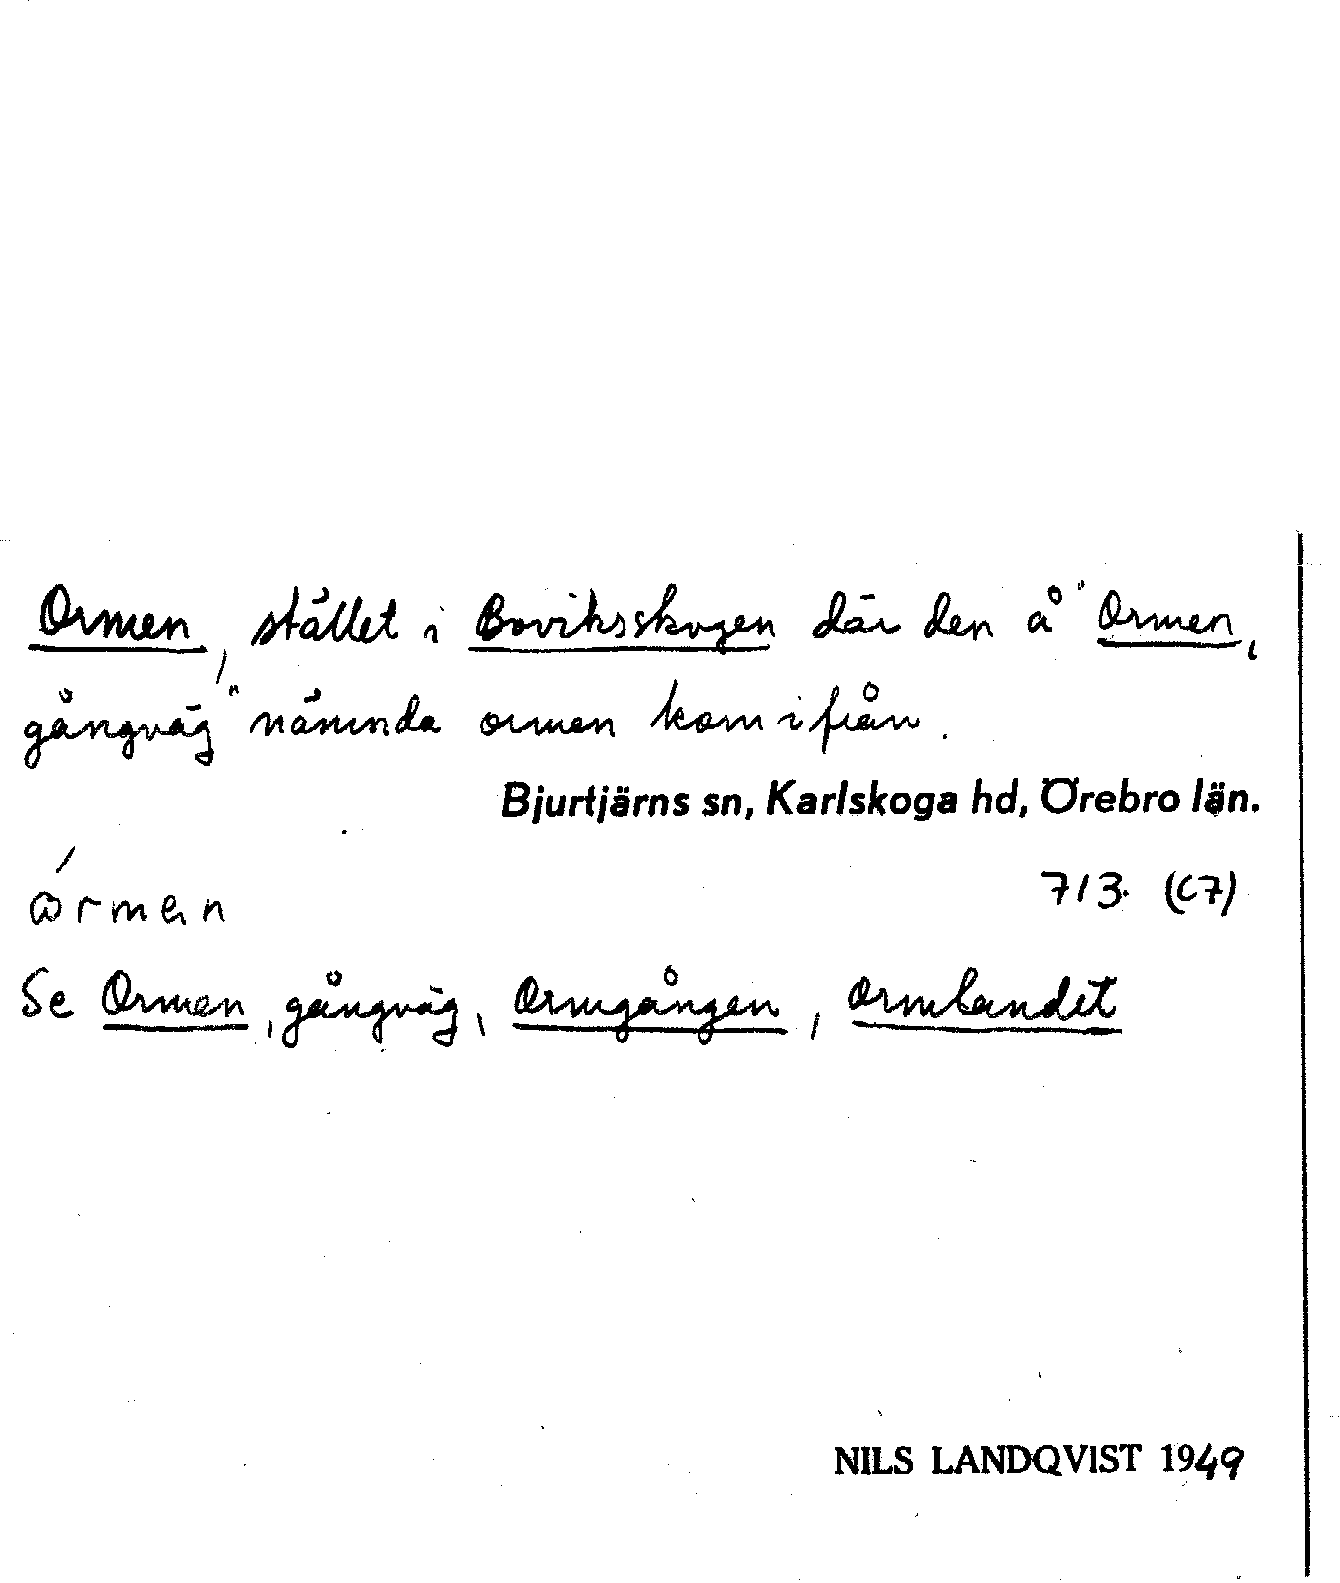 Ormen, stället i Boviksskogen där den å "Ormen,
gångväg" nämnda ormen kom ifrån.
Bjurtjärns sn, Karlskoga hd, Örebro län.
713. (C7)
Se Ormen, gångväg, Ormgången, Ormlandet
NILS LANDQVIST 1949